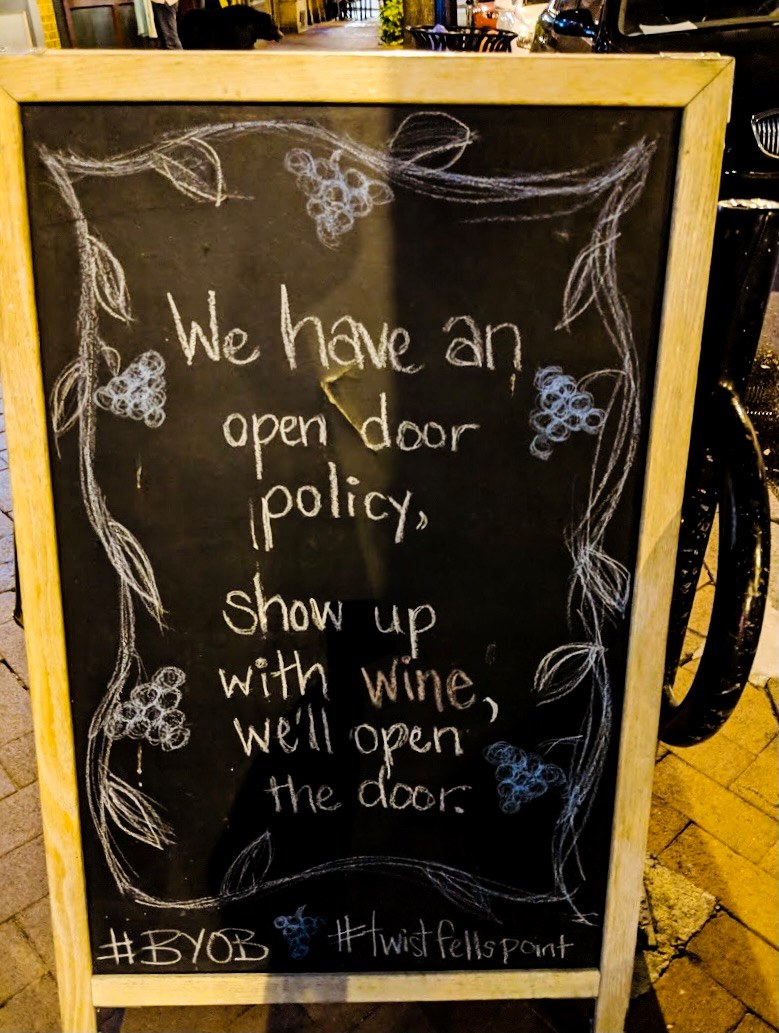 We have an
open door
policy,
show up
with wine,
we'll open
the door.
#BYOB #twistfellspoint